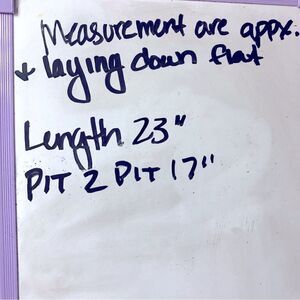 Measurement are appx.
+ laying down flat
Length 23"
PIT 2 PIT 17"